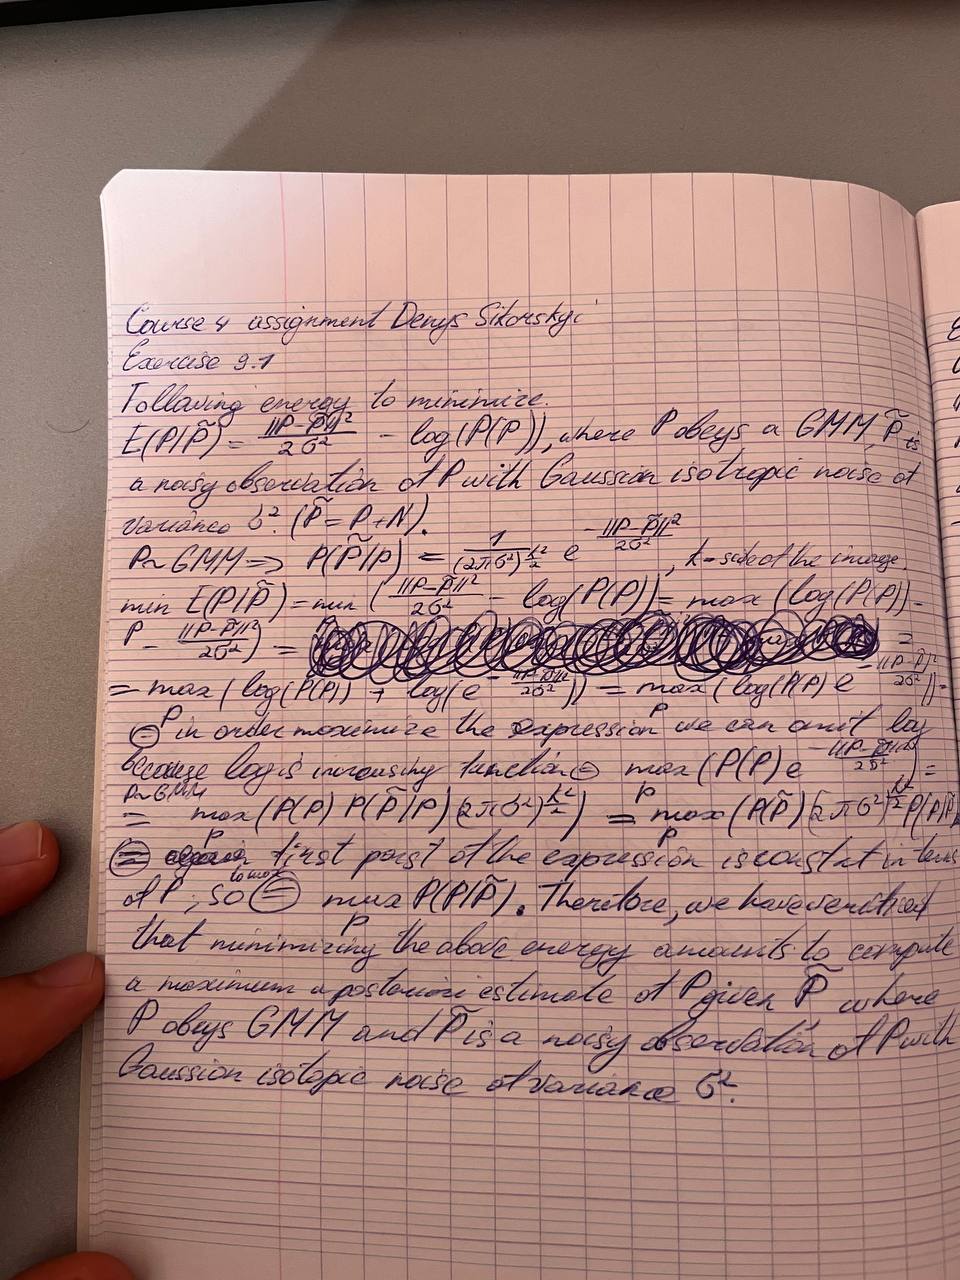 Course 4 assignment Denys Sikorskyi
Exercise 9.1
Following energy to minimize.
E(P|P̃) = ||P-P̃||²/2σ² - log(P(P)), where P obeys a GMM, P̃ is
a noisy observation of P with Gaussian isotropic noise of
variance σ². (P̃ = P + N).
P~GMM => P(P̃|P) = 1/(2πσ²)^(k²/2) e^(-||P-P̃||²/2σ²), k-side of the image.
min E(P|P̃) = min (||P-P̃||²/2σ² - log(P(P)) = max (log(P(P)) -
P - ||P-P̃||²/2σ²) = =
= max (log(P(P)) + log(e^(-||P-P̃||²/2σ²)) = max (log(P(P) e^(-||P-P̃||²/2σ²)) =
P P
= in order maximize the expression we can omit log
because log is increasing function = max (P(P) e^(-||P-P̃||²/2σ²) =
P~GMM P
= max (P(P) P(P̃|P) (2πσ²)^(k²/2)) = max (P(P̃) (2πσ²)^(k²/2) P(P|P̃)
P P
= first part of the expression is constant in terms
of P, so = max P(P|P̃). Therefore, we have verified
P
that minimizing the above energy amounts to compute
a maximum a posteriori estimate of P given P̃ where
P obeys GMM and P̃ is a noisy observation of P with
Gaussian isotopic noise of variance σ².